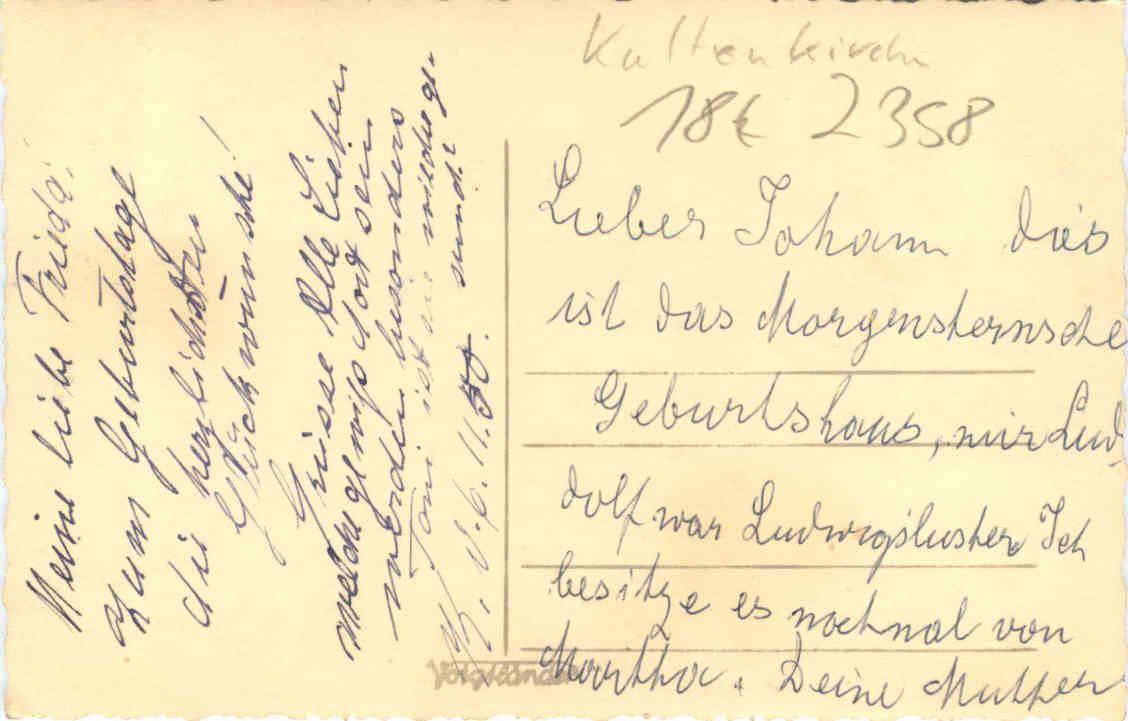 Kaltenkirchn
18€ 2358
Meine liebe Frieda!
Zum Geburtstage
die herzlichsten
Glückwünsche!
Grüsse Alle Lieben
werden besonders
Toni ist nie wieder ge-
sund?
6.11.50.
Lieber Johann dies
ist das Morgensternsche
Geburtshaus, nur Lud
dolf war Ludwigsluster. Ich
besitze es nochmal von
Martha. Deine Mutter
Voigtländer